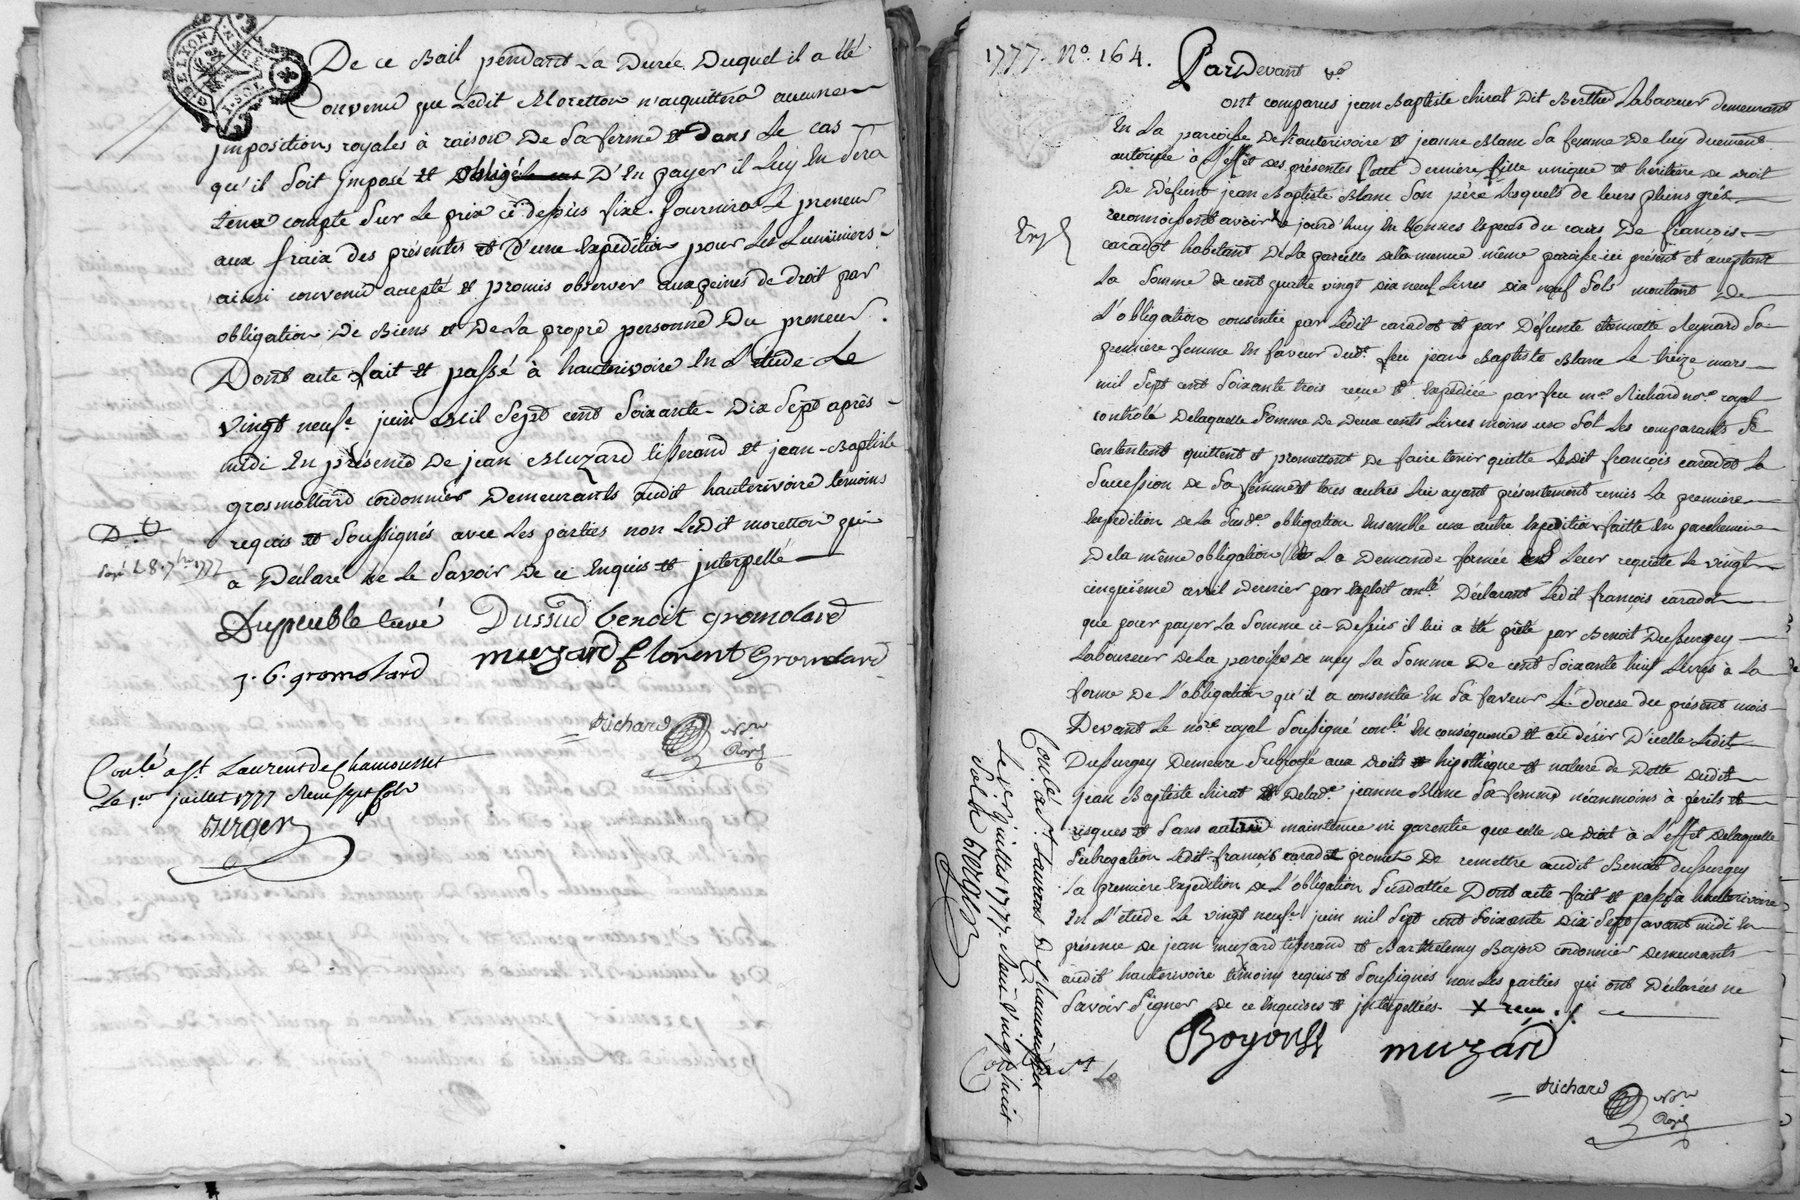 G. DE LYON
1. SOL
De ce Bail pendant La Durée Duquel il a été
Convenu que Ledit Moretton n'acquittera aucunes
jmpositions royales à raison De Sa ferme et dans Le cas
qu'il Soit jmposé et obligé D'En payer il Luy En Sera
tenu compte Sur Le prix cÿ depuis fixé. fournira Le preneur
aux fraix des présentes et d'une Expédition pour Les Luminiers
ainsi convenu accepté et promis observer aux peines de droit par
obligation De Biens et De La propre personne Du preneur.
Dont acte fait et passé à hauterivoire En L'étude Le
vingt neuf.e juin Mil Sept cent Soixante Dix Sept après
midi En présence De jean Muzard tisserand et jean-Baptiste
grosmollard cordonnier Demeurants audit hauterivoire temoins
requis et Soussignés avec Les parties non Ledit moretton qui
a Déclaré ne Le Savoir De ce Enquis et jnterpellé
D. G
Expé Le 8. 7bre 1777
Dupeuble curé Dussud benoit gromolard
muzard florent Gromolard
J. B. gromolard
Richard nore
Royal
Con.lé a St. Laurent de Chamousset
Le 1er juillet 1777 Reçu Sept Sols
berger
1777. No. 164.
Pardevant &a
ont comparus jean Baptiste chirat Dit Berthet Laboureur demeurant
En La paroisse De hauterivoire et jeanne Blanc Sa femme De luy Duement
autorisée à L'effet des présentes cette Dernière fille unique et héritière De droit
De Défunt jean Baptiste Blanc Son père Lesquels de leurs pleins grés
reconnoissent avoir x ce jourd'huy En bonnes Espèces du cours De françois
Exp
caradot habitant De La parcelle de la menue même paroisse ici présent et acceptant
La Somme de cent quatre vingt dix neuf Livres dix neuf Sols montant De
L'obligation consentie par Ledit caradot et par Défunte etiennette Reynard Sa
première femme En faveur dud.t feu jean Baptiste Blanc Le treize mars
mil Sept cent Soixante trois recue et Expédiée par feu me. Richard nore. royal
controlé De laquelle Somme De Deux cents Livres moins un Sol Les comparants Se
Contentent quittent et promettent De faire tenir quitte Ledit françois caradot La
Succession De Sa femme et tous autres Lui ayant présentement remis La première
Expédition de La Susd.e obligation Ensemble une autre Expédition faitte En parchemin
De la même obligation et La Demande formée à Leur requête Le vingt
cinquième avril Dernier par Exploit conlé. Déclarant Ledit françois caradot
que pour payer La Somme ci-Dessus il lui a été prêté par Benoit Dussurgey
Laboureur De La paroisse de mey La Somme De cent Soixante huit Livres à La
forme De L'obligation qu'il a consentie En Sa faveur Le douse du présent mois
Devant Le nore royal Soussigné conlé. En conséquence et au désir D'icelle Ledit
Dussurgey Demeure Subrogé aux droits et hipothèque et nature de Dette dudit
jean Baptiste chirat et de lad.e jeanne Blanc Sa femme néanmoins à périls et
risques et Sans autre maintenue ni garentie que celle de droit à L'effet De laquelle
Subrogation Ledit françois caradot promet De remettre audit Benoit dussurgey
La première Expédition De L'obligation Susdattée Dont acte fait et passé à hauterivoire
En L'étude Le vingt neuf.e juin mil Sept cent Soixante dix Sept avant midi En
présence de jean muzard tisserand et Barthelemy Bajon cordonnier demeurants
audit hauterivoire témoins requis et Soussignés non Les parties qui ont Déclarées ne
Savoir Signer de ce Enquises et jnterpellées. x recu
muzard
Richard nore
Royal
Conlé. a St. Laurent De Chamousset
Le 1er juillet 1777. Reçu vingt huit
Sols berger